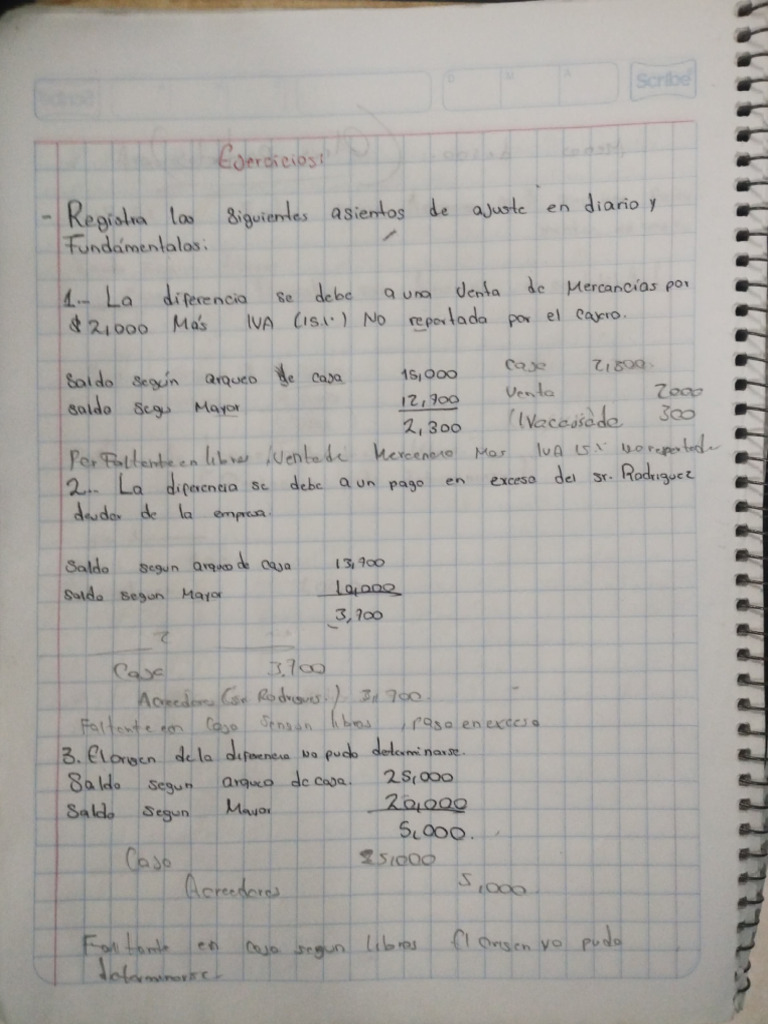 Scribe
Ejercicios:
- Registra los siguientes asientos de ajuste en diario y
Fundamentalos:
1.- La diferencia se debe a una Venta de Mercancias por
$ 2,000 Más IVA (15%) No reportada por el cajero.
Saldo según arqueo de caja 15,000 Caja 2,300
Saldo segu Mayor 12,700 Venta 2000
2,300 IVA causado 300
Por Faltante en libros, Venta de Mercancia Mas IVA 15% no reportada
2.- La diferencia se debe a un pago en exceso del sr. Rodriguez
deudor de la empresa.
Saldo segun arqueo de caja 13,700
Saldo segun Mayor 10,000
3,700
2
Caja 3,700
Acreedores (sr Rodrigues) 3,700
Faltante en Caja segun libros, pago en exceso
3. El origen de la diferencia no pudo determinarse.
Saldo segun arqueo de caja. 25,000
Saldo segun Mayor 20,000
5,000.
Caja 5,000
Acreedores 5,000
Faltante en caja segun libros El origen no pudo
determinarse